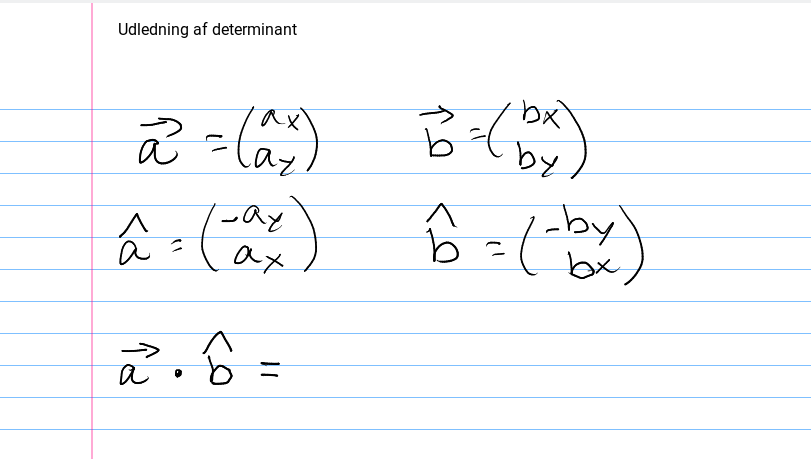 Udledning af determinant
a⃗ = (ax ay) b⃗ = (bx by)
â = (-ay ax) b̂ = (-by bx)
a⃗ · b̂ =